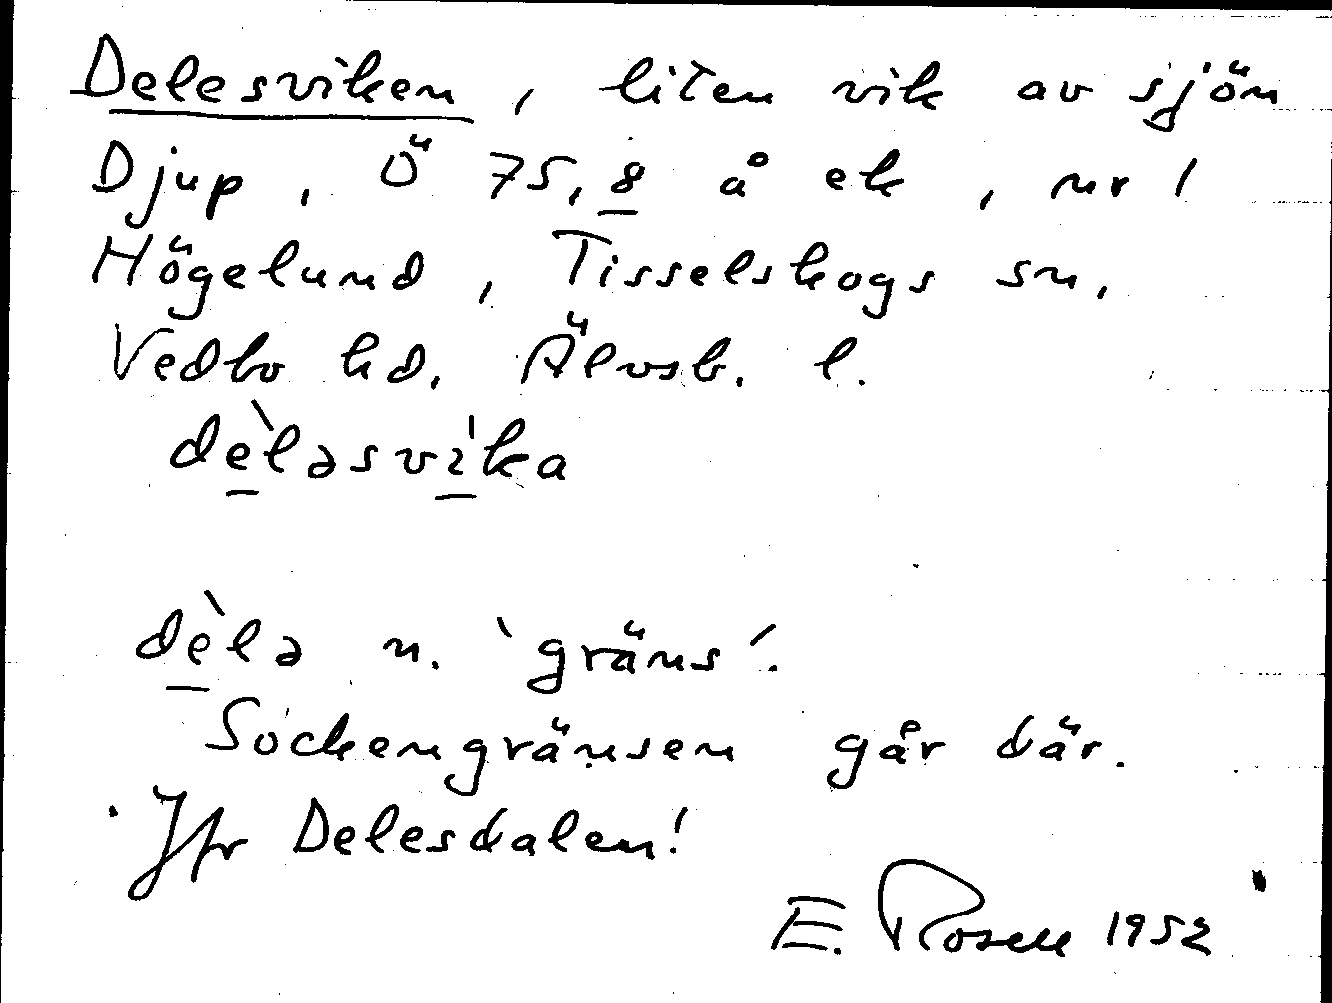 Delesviken, liten vik av sjön
Djup, Ö 75,8 å ek, nr 1
Högelund, Tisselskogs sn,
Vedbo hd, Älvsb. l.
dèləsvi'ka
dèlə n. 'gräns'.
Sockengränsen går där.
Jfr Delesdalen!
E. Rosell 1952